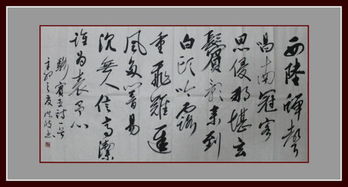 西陸蟬聲
唱南冠客
思侵那堪玄
鬢影來對
白頭吟露
重飛難進
風多響易
沉無人信高潔
誰為表予心
駱賓王詩一首
辛卯之夏